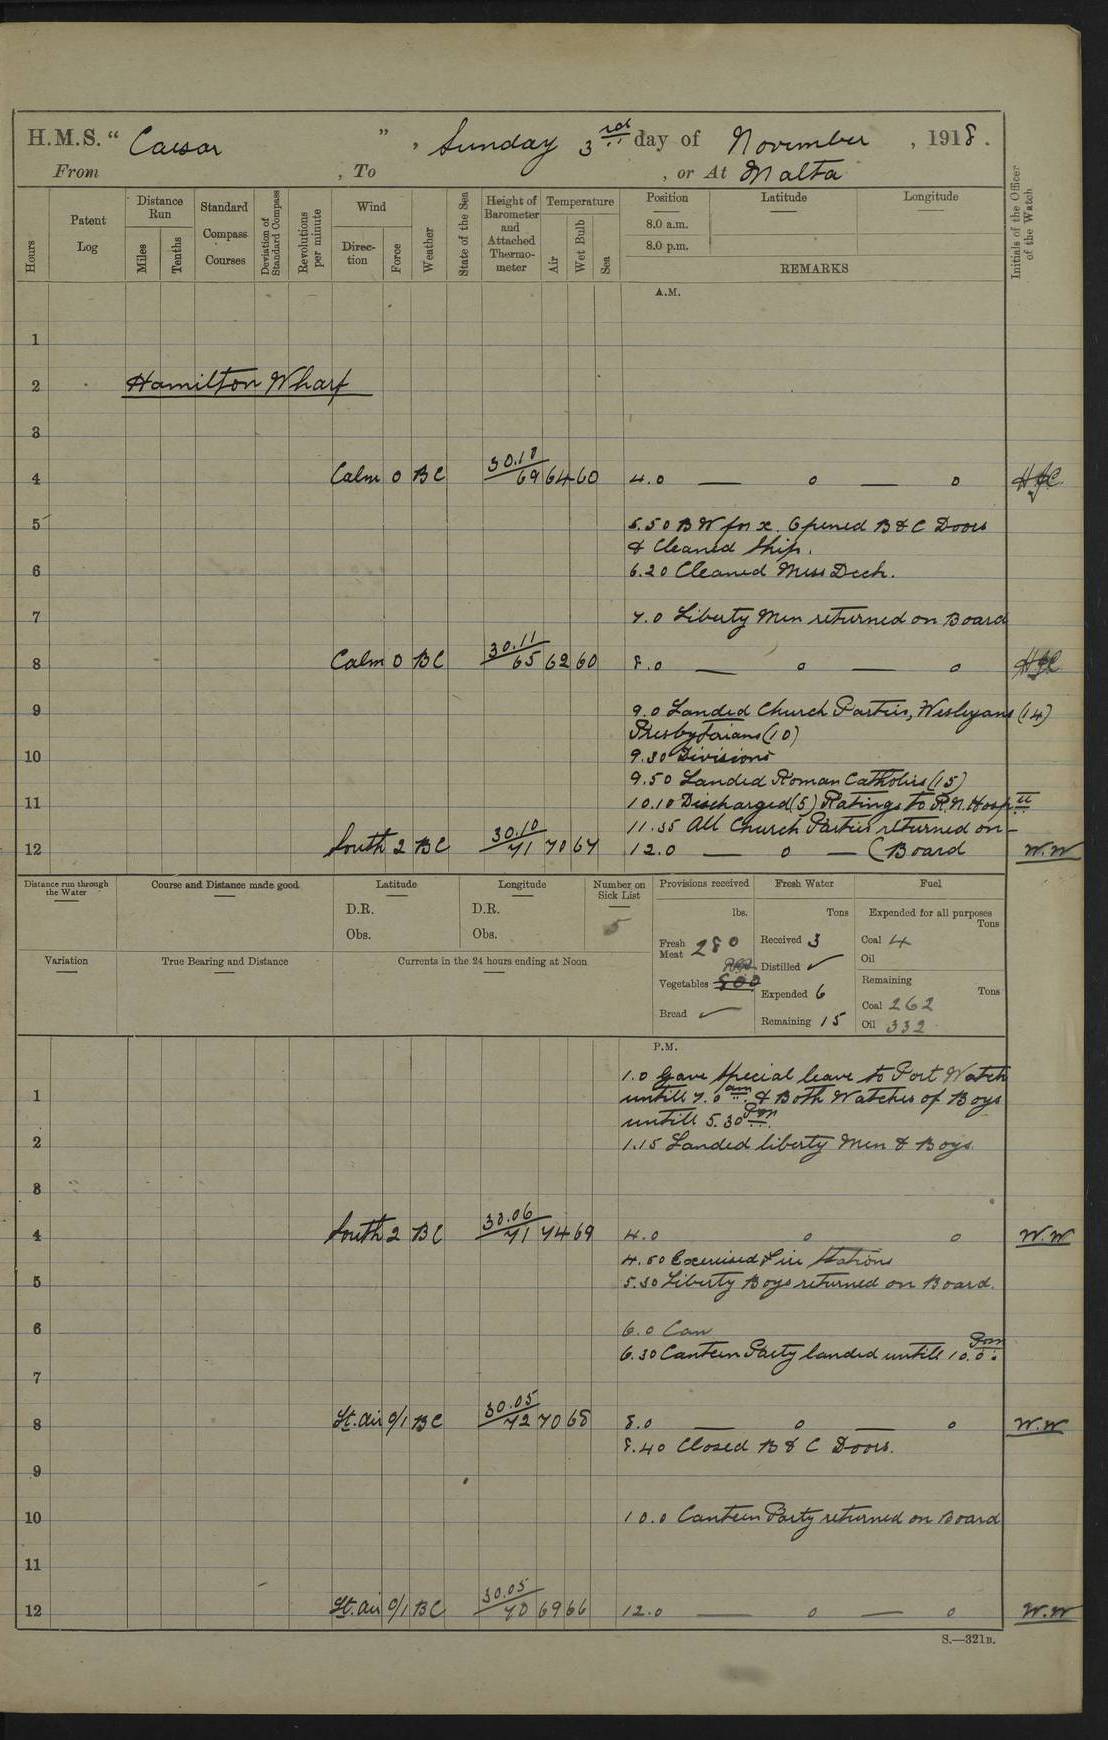 H.M.S. “ Caesar ”, Sunday 3rd day of November, 1918.
From , To , or At Malta
Hours
Patent Log
Distance Run
Miles
Tenths
Standard Compass Courses
Deviation of Standard Compass
Revolutions per minute
Wind
Direction
Force
Weather
State of the Sea
Height of Barometer and Attached Thermometer
Temperature
Air
Wet Bulb
Sea
Position
8.0 a.m.
8.0 p.m.
Latitude
Longitude
REMARKS
Initials of the Officer of the Watch
A.M.
1
2 Hamilton Wharf
3
4 Calm 0 BC 30.18 69 64 60 4.0 — o — o
5 5.50 BW for x. Opened B & C Doors
& Cleaned Ship.
6 6.20 Cleaned Mess Deck.
7 7.0 Liberty Men returned on Board
8 Calm 0 BC 30.11 65 62 60 8.0 — o — o
9 9.0 Landed Church Parties, Wesleyans (14)
Presbytarians (10)
10 9.30 Divisions
9.50 Landed Roman Catholics (15)
11 10.10 Discharged (5) Ratings to R.N. Hospll
11.35 All Church Parties returned on -
12 South 2 BC 30.10 71 70 67 12.0 — o — (Board W.W
Distance run through the Water
Course and Distance made good
Latitude
D.R.
Obs.
Longitude
D.R.
Obs.
Number on Sick List
5
Provisions received
lbs.
Fresh Meat 280
Vegetables 800
Bread ✓
Fresh Water
Tons
Received 3
Distilled ✓
Expended 6
Remaining 15
Fuel
Expended for all purposes
Tons
Coal 4
Oil
Remaining
Tons
Coal 262
Oil 332
Variation
True Bearing and Distance
Currents in the 24 hours ending at Noon
P.M.
1.0 Gave special leave to Port Watch
1 untill 7.0 am. & Both Watches of Boys
untill 5.30 Pm.
2 1.15 Landed liberty Men & Boys.
3
4 South 2 BC 30.06 71 74 69 4.0 o o W.W
4.50 Exercised Fire Stations
5 5.30 Liberty Boys returned on Board.
6 6.0 Can
6.30 Canteen Party landed untill 10.0 Pm.
7
8 Lt. air 0/1 BC 30.05 72 70 68 8.0 — o — o W.W
8.40 Closed B & C Doors.
9
10 10.0 Canteen Party returned on Board
11
12 Lt. air 0/1 BC 30.05 70 69 66 12.0 — o — o W.W
S.—321B.